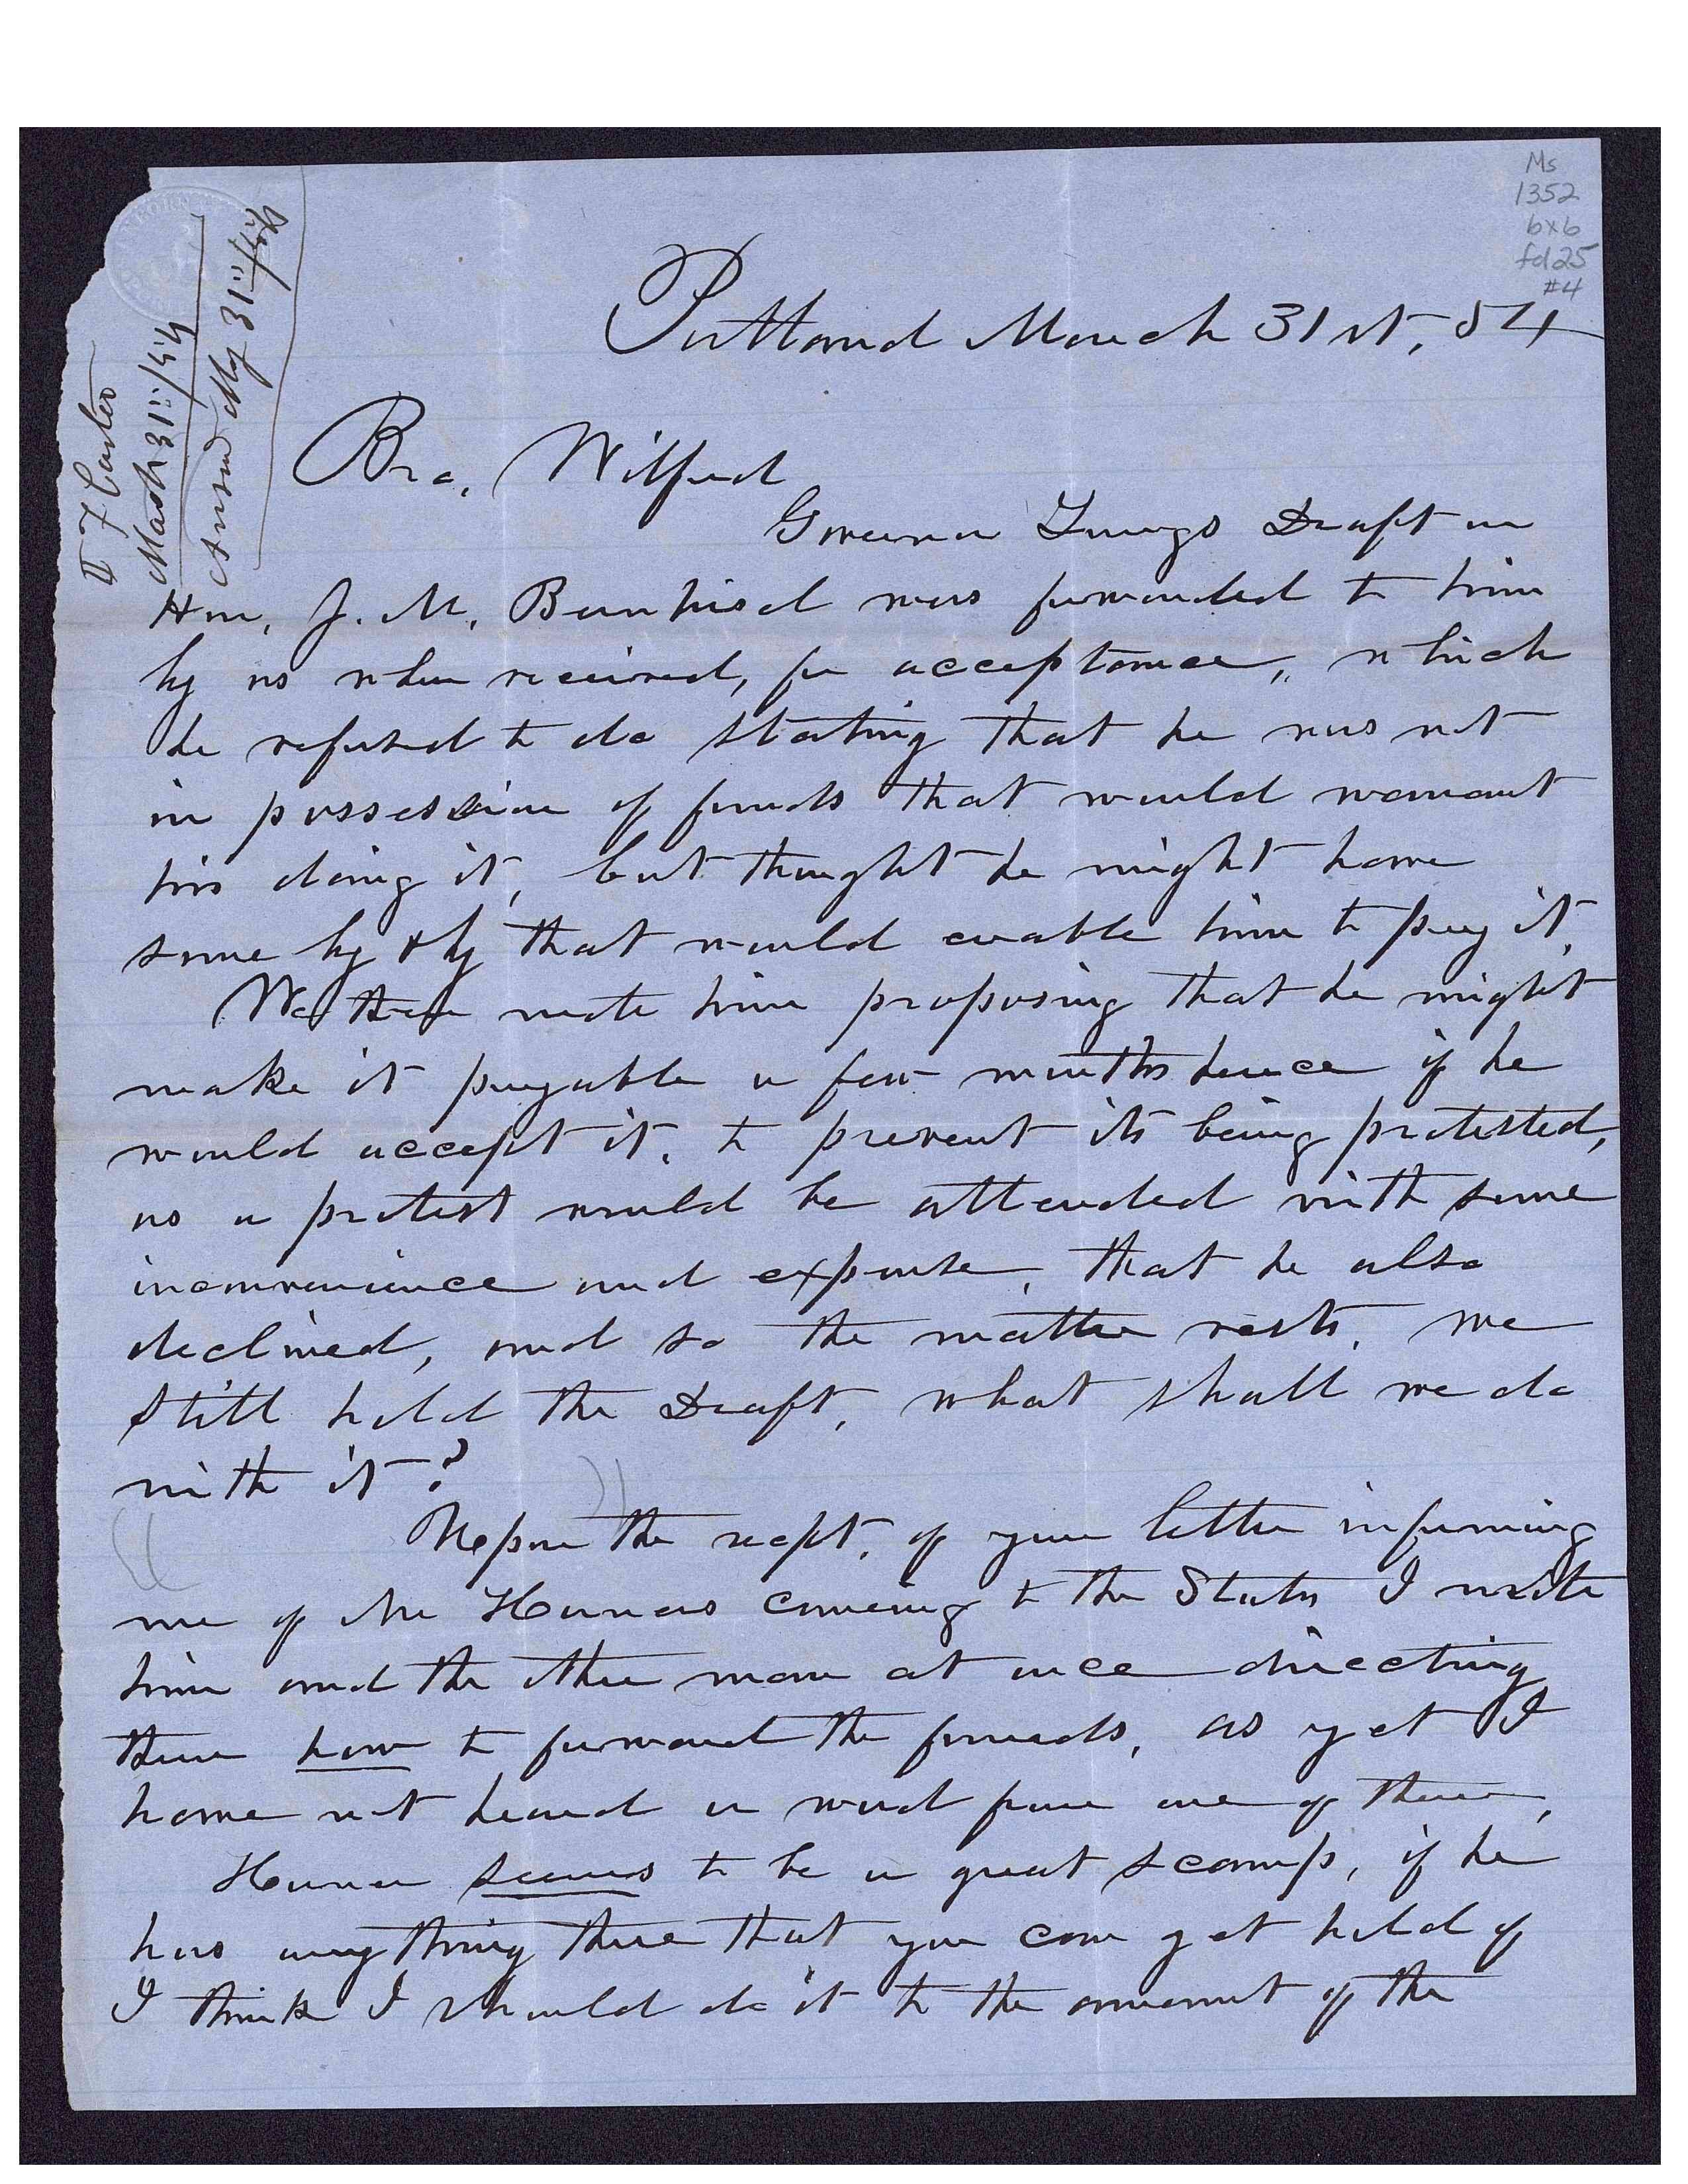 Ms
1352
bx6
fd25
#4
I F Carter
March 31st/54
Answd My 31st/54
Portland March 31st, 54
Bro, Wilford
Governor Youngs Draft on
Hon, J. M, Bernhisel was forwarded to him
by us when received, for acceptance, which
he refused to do stating that he was not
in possession of funds that would warrant
his doing it, but thought he might have
some by & by that would enable him to pay it,
We then wrote him proposing that he might
make it payable a few months hence if he
would accept it, to prevent its being protested,
as a protest would be attended with some
inconvenience and expense, that he also
declined, and so the matter rests, we
still hold the Draft, what shall we do
with it?
Uepon the recpt, of your letter informing
me of Mr Horners comeing to the States I wrote
him and the other man at once directing
them how to forward the funds, as yet I
have not heard a word from one of them,
Horner seems to be a great scamp, if he
has any thing there that you can get hold of
I think I should do it to the amount of the